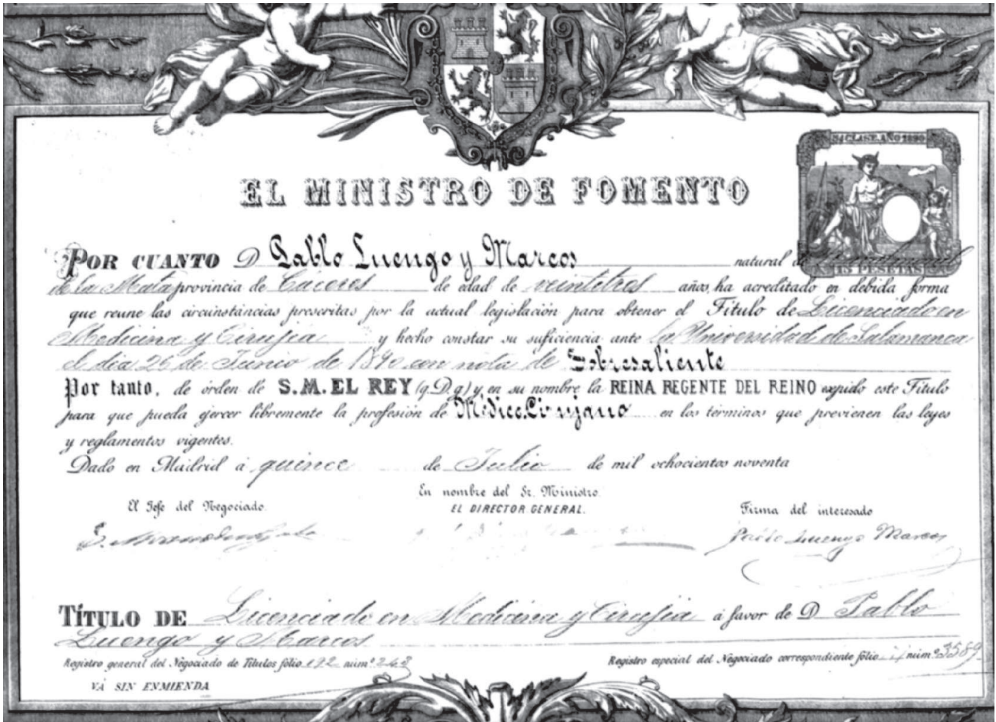 34 CLASE AÑO 1890
EL MINISTRO DE FOMENTO
15 PESETAS
POR CUANTO D Pablo Luengo y Marcos natural de
de la Mata provincia de Cáceres de edad de veintitres años, ha acreditado en debida forma
que reune las circunstancias prescritas por la actual legislación para obtener el Título de Licenciado en
Medicina y Cirujia y hecho constar su suficiencia ante la Universidad de Salamanca
el dia 26 de Junio de 1890 con nota de Sobresaliente
Por tanto, de órden de S.M. EL REY (q.D.g) y en su nombre la REINA REGENTE DEL REINO expido este Título
para que pueda ejercer libremente la profesión de Médico Cirujano en los términos que previenen las leyes
y reglamentos vigentes.
Dado en Madrid á quince de Julio de mil ochocientos noventa
El Jefe del Negociado.
En nombre del Sr. Ministro.
EL DIRECTOR GENERAL.
Firma del interesado
Pablo Luengo Marcos
TÍTULO DE Licenciado en Medicina y Cirujia á favor de D Pablo
Luengo y Marcos
Registro general del Negociado de Titulos folio 192 núm.º 243
Registro especial del Negociado correspondiente folio núm.º 3589
VÁ SIN ENMIENDA